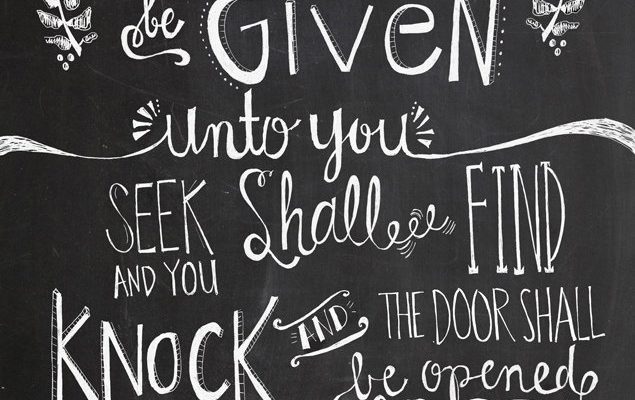 be GIVEN
unto you
SEEK Shall FIND
AND YOU
KNOCK AND THE DOOR SHALL
be opened